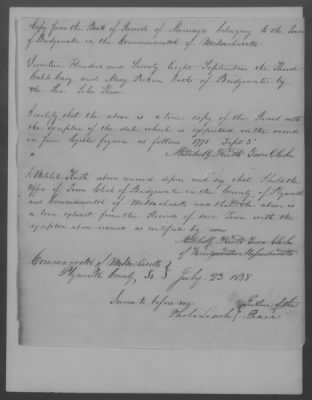 Copy from the Book of Records of Marriages belonging to the Town
of Bridgewater in the Commonwealth of Massachusetts
Seventeen Hundred and Seventy Eight September the Third
Caleb Cary and Mary both of Bridgewater by
the Rev. John Shaw
I certify that the above is a true copy of the Record with
the exception of the date which is expressed on the record
in four figures as follows 1778 Sept 3d
Mitchell Keith Town Clerk
I Mitchell Keith above named depose and say that I hold the
Office of Town Clerk of Bridgewater in the County of Plymouth
and Commonwealth of Massachusetts and that the above is
a true extract from the Records of said Town with the
exception above named as certified by me
Mitchell Keith Town Clerk
of Bridgewater Massachusetts
Commonwealth of Massachusetts
Plymouth County, Ss } July 23 1838
Sworn to before me Justice of the
Leach } Peace